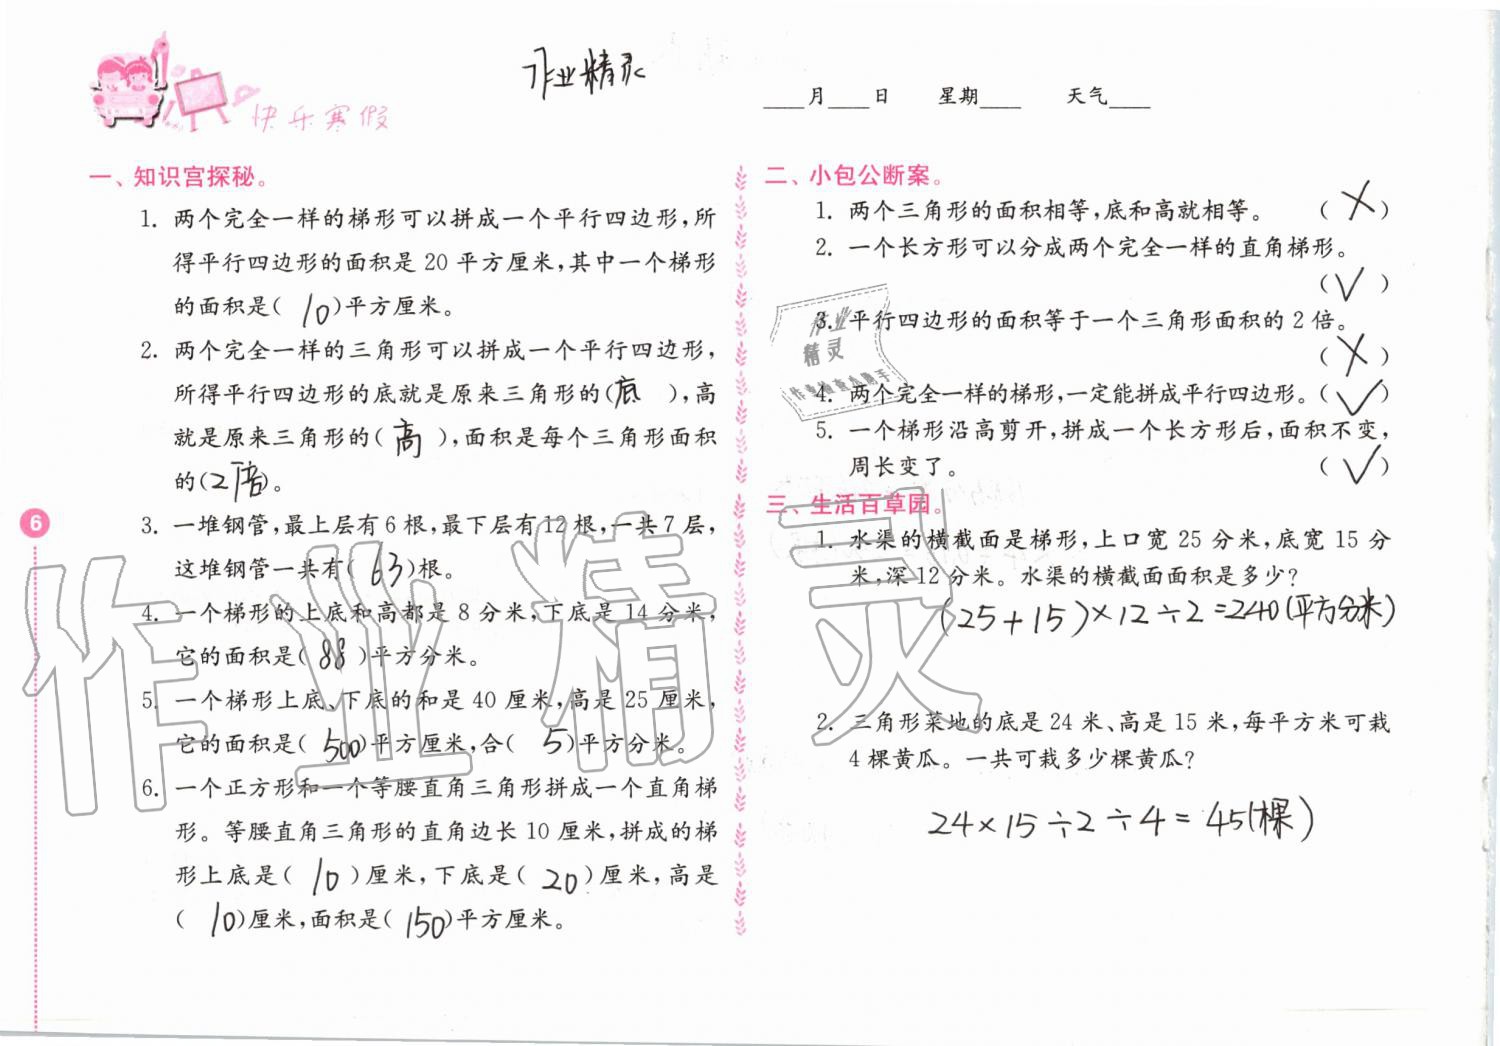 作业精灵
快乐寒假
____月____日 星期____ 天气____
一、知识宫探秘。
1. 两个完全一样的梯形可以拼成一个平行四边形,所
得平行四边形的面积是 20 平方厘米,其中一个梯形
的面积是( 10 )平方厘米。
2. 两个完全一样的三角形可以拼成一个平行四边形,
所得平行四边形的底就是原来三角形的(底 ),高
就是原来三角形的( 高 ),面积是每个三角形面积
的(2倍)。
3. 一堆钢管,最上层有 6 根,最下层有 12 根,一共 7 层,
这堆钢管一共有( 63 )根。
4. 一个梯形的上底和高都是 8 分米,下底是 14 分米,
它的面积是( 88 )平方分米。
5. 一个梯形上底、下底的和是 40 厘米,高是 25 厘米,
它的面积是( 500 )平方厘米,合( 5 )平方分米。
6. 一个正方形和一个等腰直角三角形拼成一个直角梯
形。等腰直角三角形的直角边长 10 厘米,拼成的梯
形上底是( 10 )厘米,下底是( 20 )厘米,高是
( 10 )厘米,面积是( 150 )平方厘米。
6
二、小包公断案。
1. 两个三角形的面积相等,底和高就相等。 ( × )
2. 一个长方形可以分成两个完全一样的直角梯形。
( √ )
3. 平行四边形的面积等于一个三角形面积的 2 倍。
( × )
4. 两个完全一样的梯形,一定能拼成平行四边形。( √ )
5. 一个梯形沿高剪开,拼成一个长方形后,面积不变,
周长变了。 ( √ )
三、生活百草园。
1. 水渠的横截面是梯形,上口宽 25 分米,底宽 15 分
米,深 12 分米。水渠的横截面面积是多少?
(25+15)×12÷2=240(平方分米)
2. 三角形菜地的底是 24 米、高是 15 米,每平方米可栽
4 棵黄瓜。一共可栽多少棵黄瓜?
24×15÷2÷4=45(棵)
作业
精灵
作业检查小助手
作业精灵